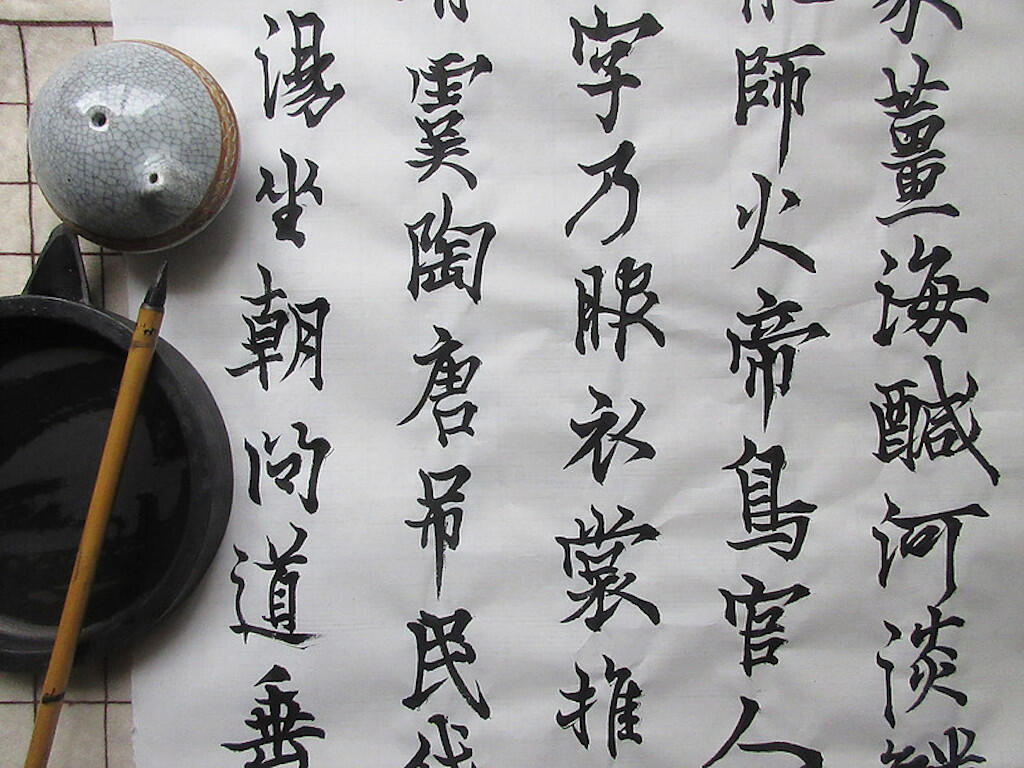 薑海鹹河淡
師火帝鳥官人
字乃服衣裳推
虞陶唐吊民伐
湯坐朝問道垂